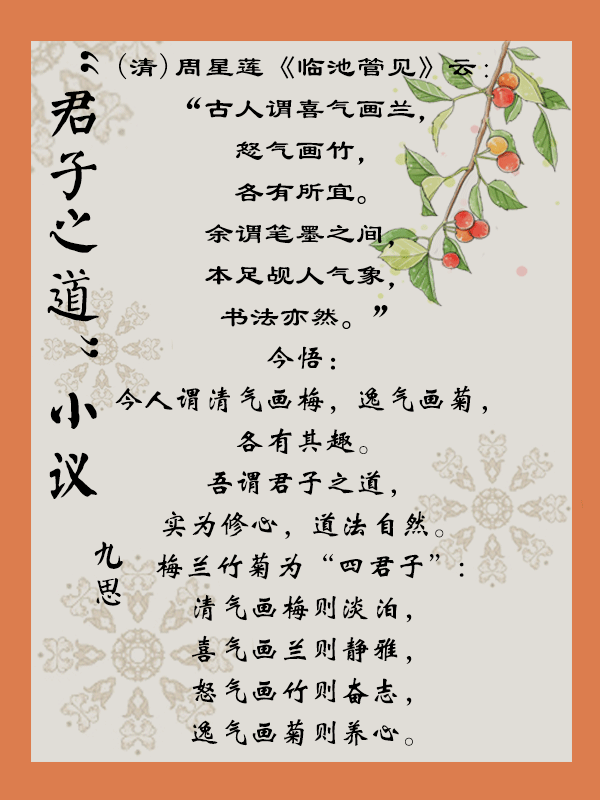 “君子之道”小议
九思
(清)周星莲《临池管见》云：
“古人谓喜气画兰，
怒气画竹，
各有所宜。
余谓笔墨之间，
本足觇人气象，
书法亦然。”
今悟：
今人谓清气画梅，逸气画菊，
各有其趣。
吾谓君子之道，
实为修心，道法自然。
梅兰竹菊为“四君子”：
清气画梅则淡泊，
喜气画兰则静雅，
怒气画竹则奋志，
逸气画菊则养心。